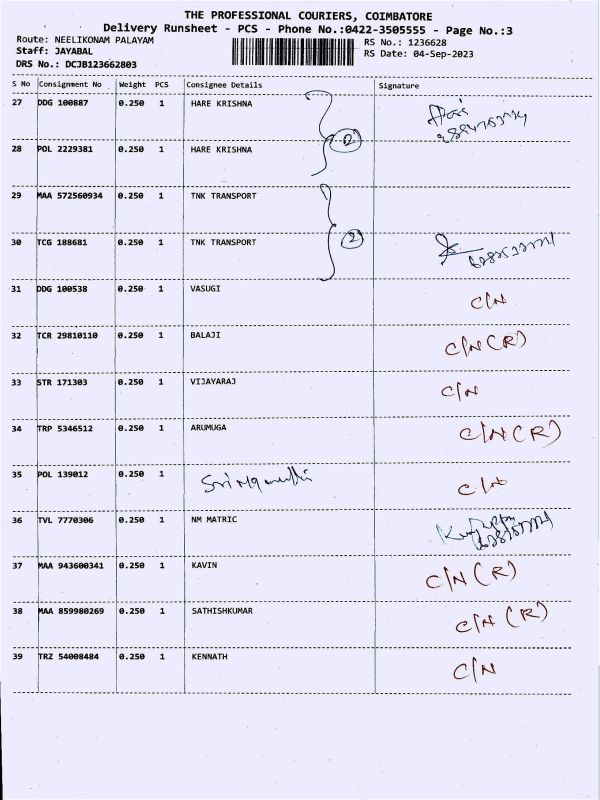 THE PROFESSIONAL COURIERS, COIMBATORE
Delivery Runsheet - PCS - Phone No.:0422-3505555 - Page No.:3
Route: NEELIKONAM PALAYAM RS No.: 1236628
Staff: JAYABAL RS Date: 04-Sep-2023
DRS No.: DCJB123662803
S No Consignment No Weight PCS Consignee Details Signature
27 DDG 100887 0.250 1 HARE KRISHNA
28 POL 2229381 0.250 1 HARE KRISHNA
2
29 MAA 572560934 0.250 1 TNK TRANSPORT
30 TCG 188681 0.250 1 TNK TRANSPORT 2
31 DDG 100538 0.250 1 VASUGI C/N
32 TCR 29810110 0.250 1 BALAJI C/N (R)
33 STR 171303 0.250 1 VIJAYARAJ C/N
34 TRP 5346512 0.250 1 ARUMUGA C/N (R)
35 POL 139012 0.250 1 C/N
36 TVL 7770306 0.250 1 NM MATRIC
37 MAA 943600341 0.250 1 KAVIN C/N (R)
38 MAA 859980269 0.250 1 SATHISHKUMAR C/N (R)
39 TRZ 54008484 0.250 1 KENNATH C/N